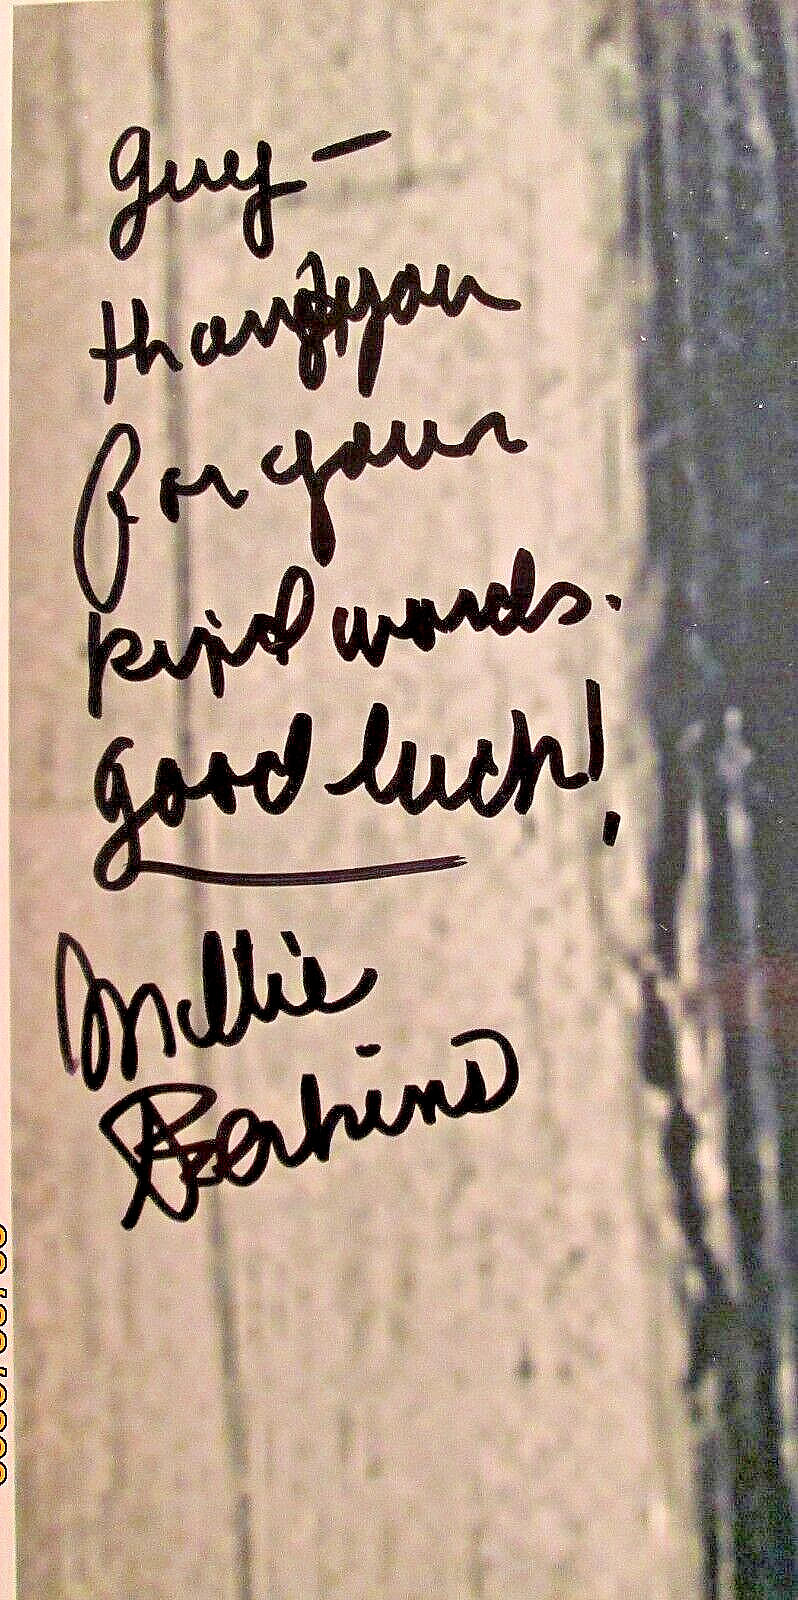 Guy —
thank you
for your
kind words.
Good luck!
Millie
Perkins